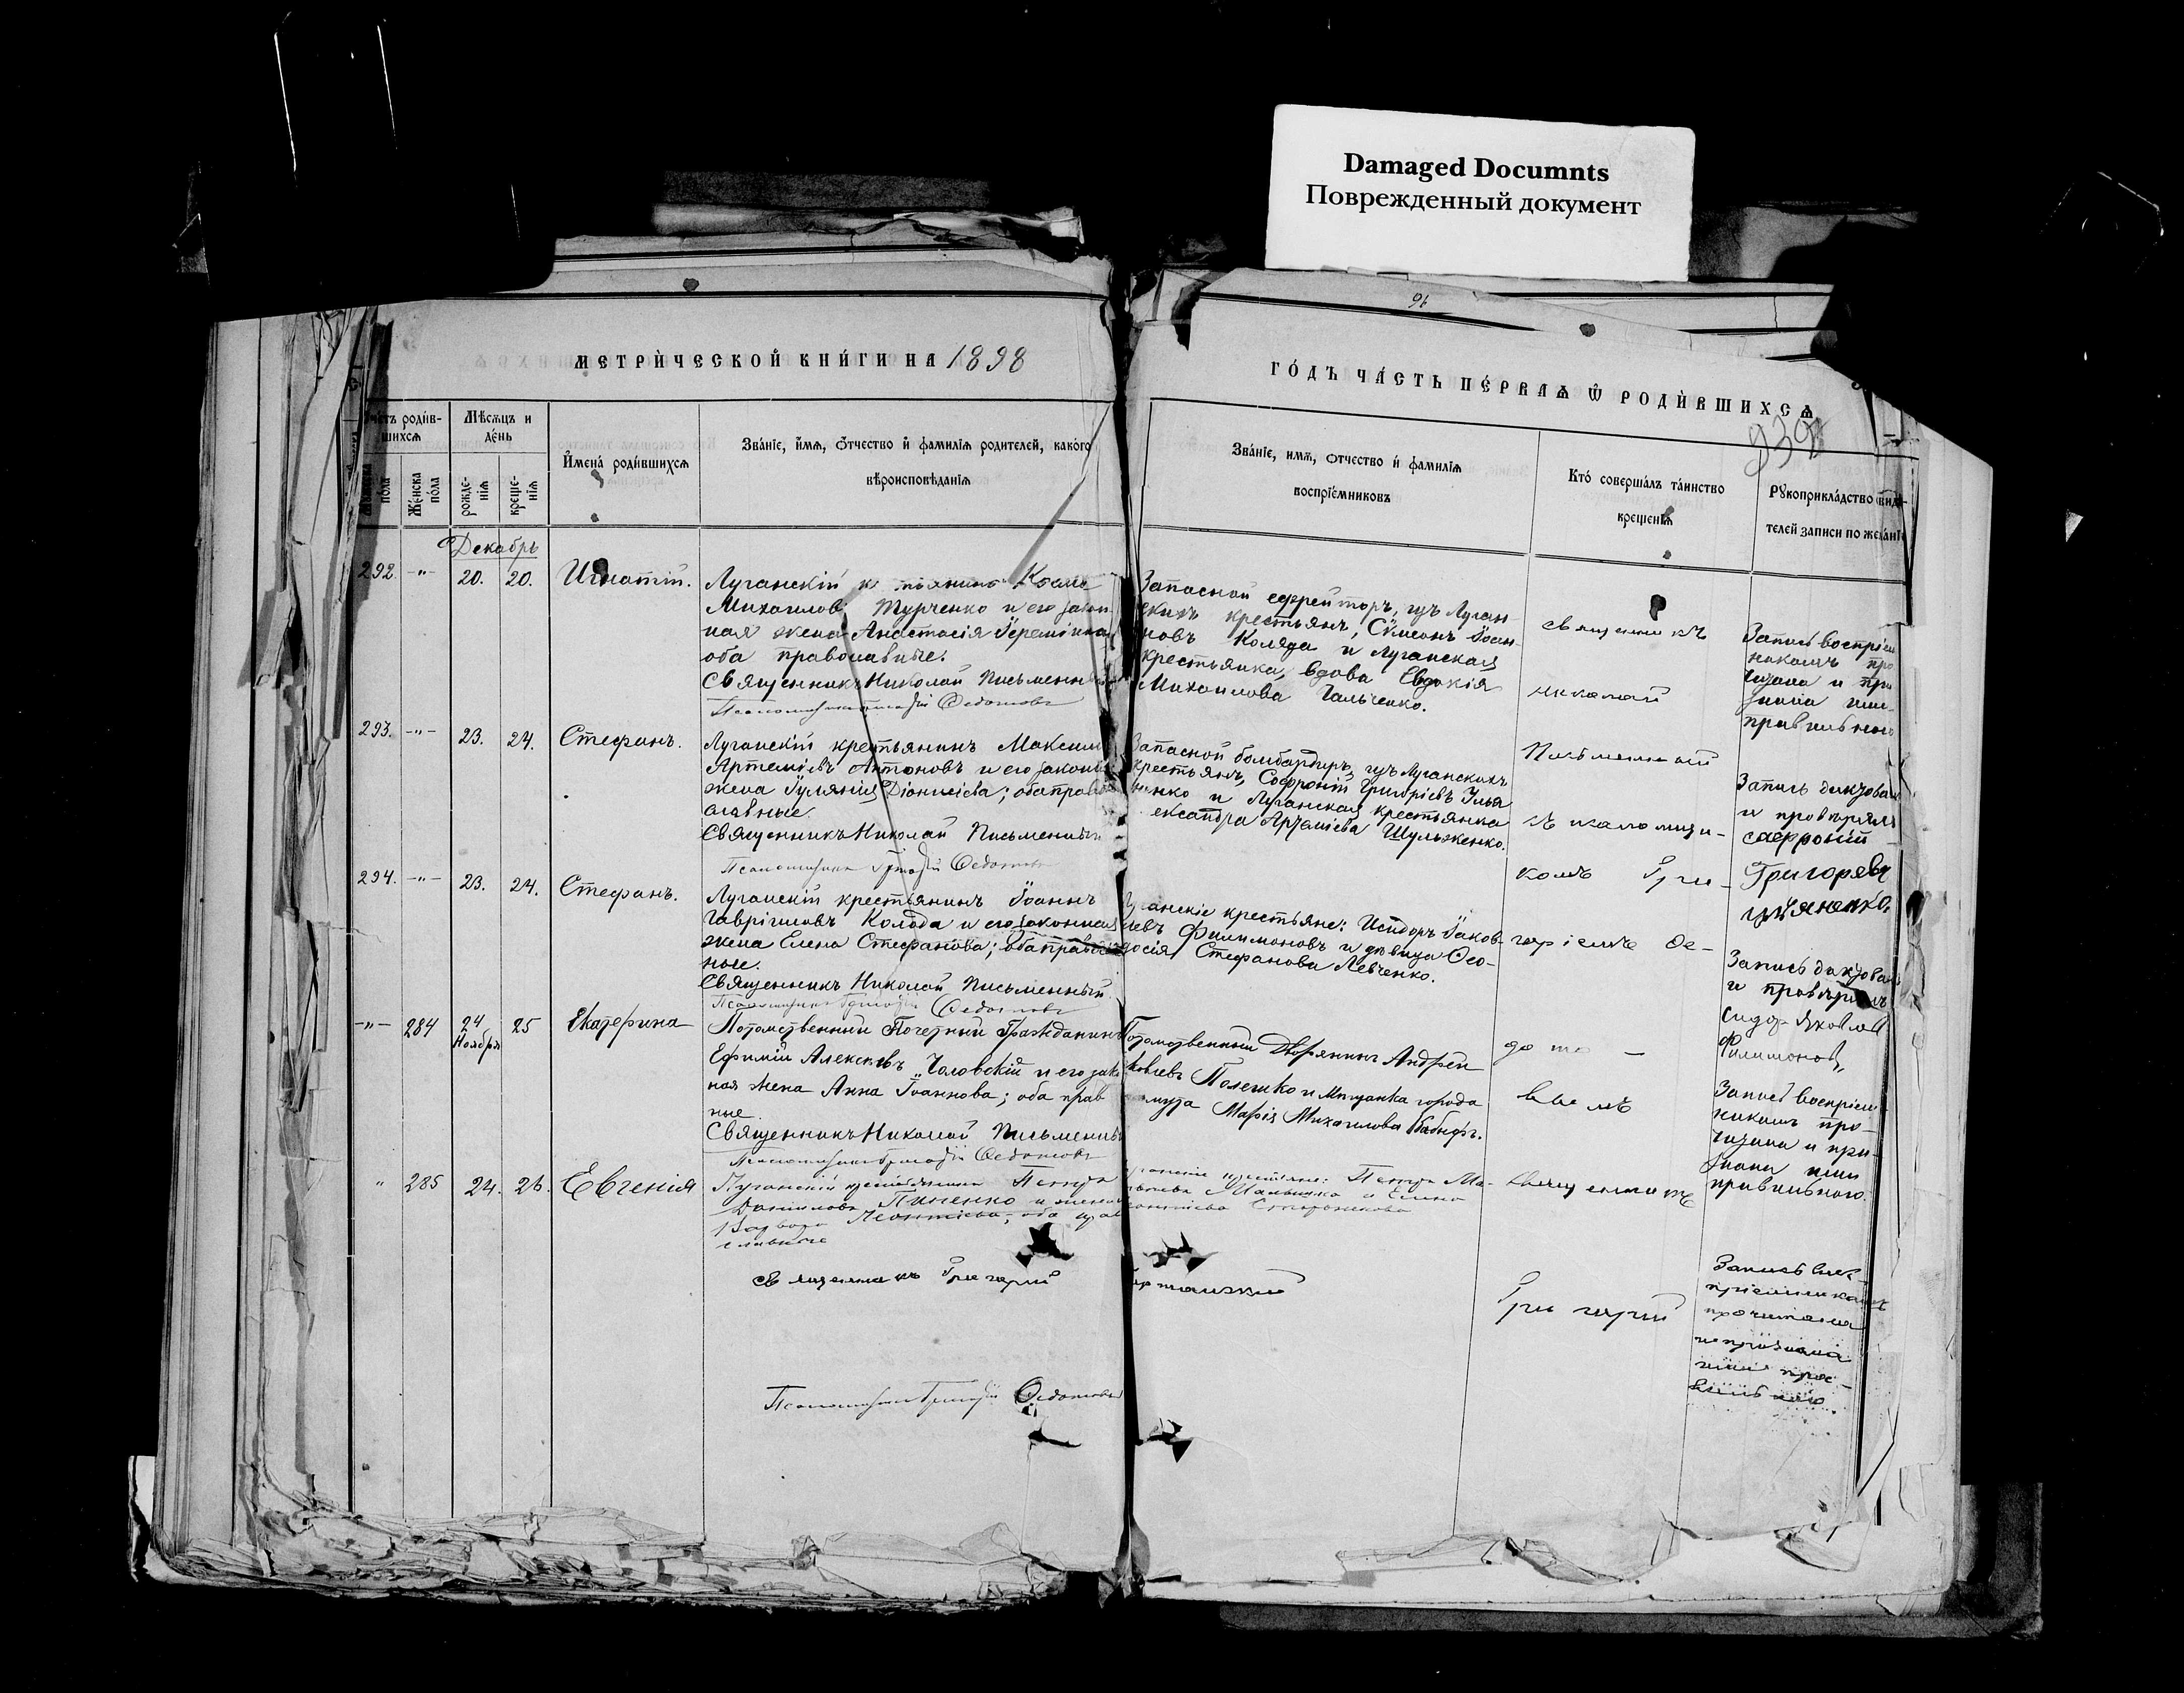 Damaged Documnts
Поврежденный документ
91
МЕТРИ́ЧЕСКОЙ КНИ́ГИ НА 1898
ГО́ДЪ ЧА́СТЬ ПЕ́РВАѦ Ѿ РОДИ́ВШИХСѦ
939
Счетъ роди́в-
шихсѧ
Мꙋжеска по́ла
Же́нска по́ла
Мѣсѧцъ и
де́нь
рожде-
нїѧ
креще-
нїѧ
И҆мена̀ роди́вшихсѧ
Зва́нїе, и҆́мѧ, ѻ҆́тчество и҆ фамилїѧ родителей, како́го
вѣроисповѣданїѧ
Зва́нїе, имѧ, отчество и҆ фамилїѧ
воспрїе́мниковъ
Кто́ соверша́лъ та́инство
крещенїѧ
Рꙋкоприкла́дство свидѣ-
телей записи по жела́нїю
Декабрь
292. -"- 20. 20. Игнатій.
Луганскій крестьянинъ Косма
Михаиловъ Турченко и его закон-
ная жена Анастасія Іереміина
оба православные.
Священникъ Николай Письменный
Псаломщикъ Григорій Федотовъ
Запасной ефрейторъ, изъ Луган-
скихъ крестьянъ, Сѵмеонъ Іоан-
новъ Коляда и Луганская
крестьянка, вдова Евдокія
Михаилова Гальченко.
Священникъ
Николай
Письменный
Запись воспріем
никамъ про-
читана и при
знана ими
правильною
293. -"- 23. 24. Стефанъ.
Луганскій крестьянинъ Максимъ
Артеміевъ Антоновъ и его законная
жена Іуліанія Діонисіева; оба право
славные.
Священникъ Николай Письменный
Псаломщикъ Григорій Федотовъ
Запасной бомбардиръ, изъ Луганскихъ
крестьянъ, Софроній Григоріевъ Улья
ненко и Луганская крестьянка
ександра Артеміева Шульженко.
съ псаломщи-
комъ Гри-
горіемъ Фе-
Запись диктовалъ
и провѣрялъ
Софроній
Григорявъ
294. -"- 23. 24. Стефанъ.
Луганскій крестьянинъ Іоаннъ
Гавріиловъ Колода и его законная
жена Елена Стефанова; оба православ
ные.
Священникъ Николай Письменный.
Псаломщикъ Григорій Федотовъ
Луганскіе крестьяне: Исидоръ Іаков-
левъ Филимоновъ и дѣвица Ѳео-
досія Стефанова Левченко.
до то —
вымъ
Запись диктовалъ
и провѣрялъ
Сидоръ Яковлев
Филимоновъ
-"- 284 24 Ноября 25 Екатерина
Потомственный Почетный Гражданинъ
Ефимій Алексѣевъ Чаловскій и его закон
ная жена Анна Іоаннова; оба прав
ные.
Священникъ Николай Письменный
Псаломщикъ Григорій Федотовъ
Потомственный Дворянинъ Андрей
ковлевъ Полешко и Мѣщанка города
Марія Михаилова
Запись воспріем
никамъ про-
читана и при-
знана ими
правильною.
" 285 24. 26. Евгенія
Луганскій крестьянинъ Петръ
Даниловъ Пипенко и жена
Варвара Леонтіева; оба прав
славные
Священникъ Григорій
Псаломщикъ Григорій Федотовъ
Луганскіе крестьяне: Петръ Ма-
и Елена
Священникъ
Григорій
Запись вос-
пріемникамъ
прочитана
и признана
ими пра-
вильною.